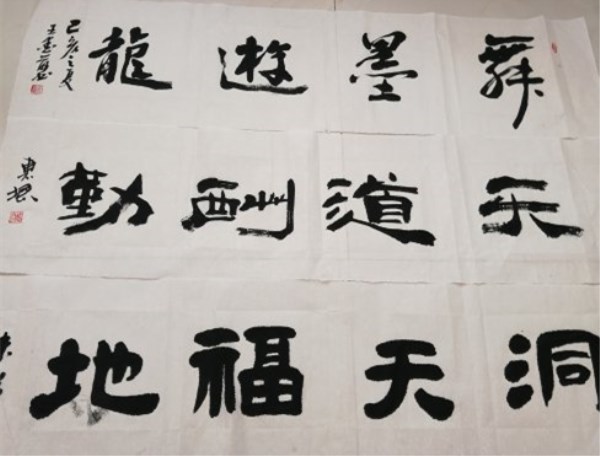 舞墨遊龍
己亥之夏
天道酬勤
洞天福地